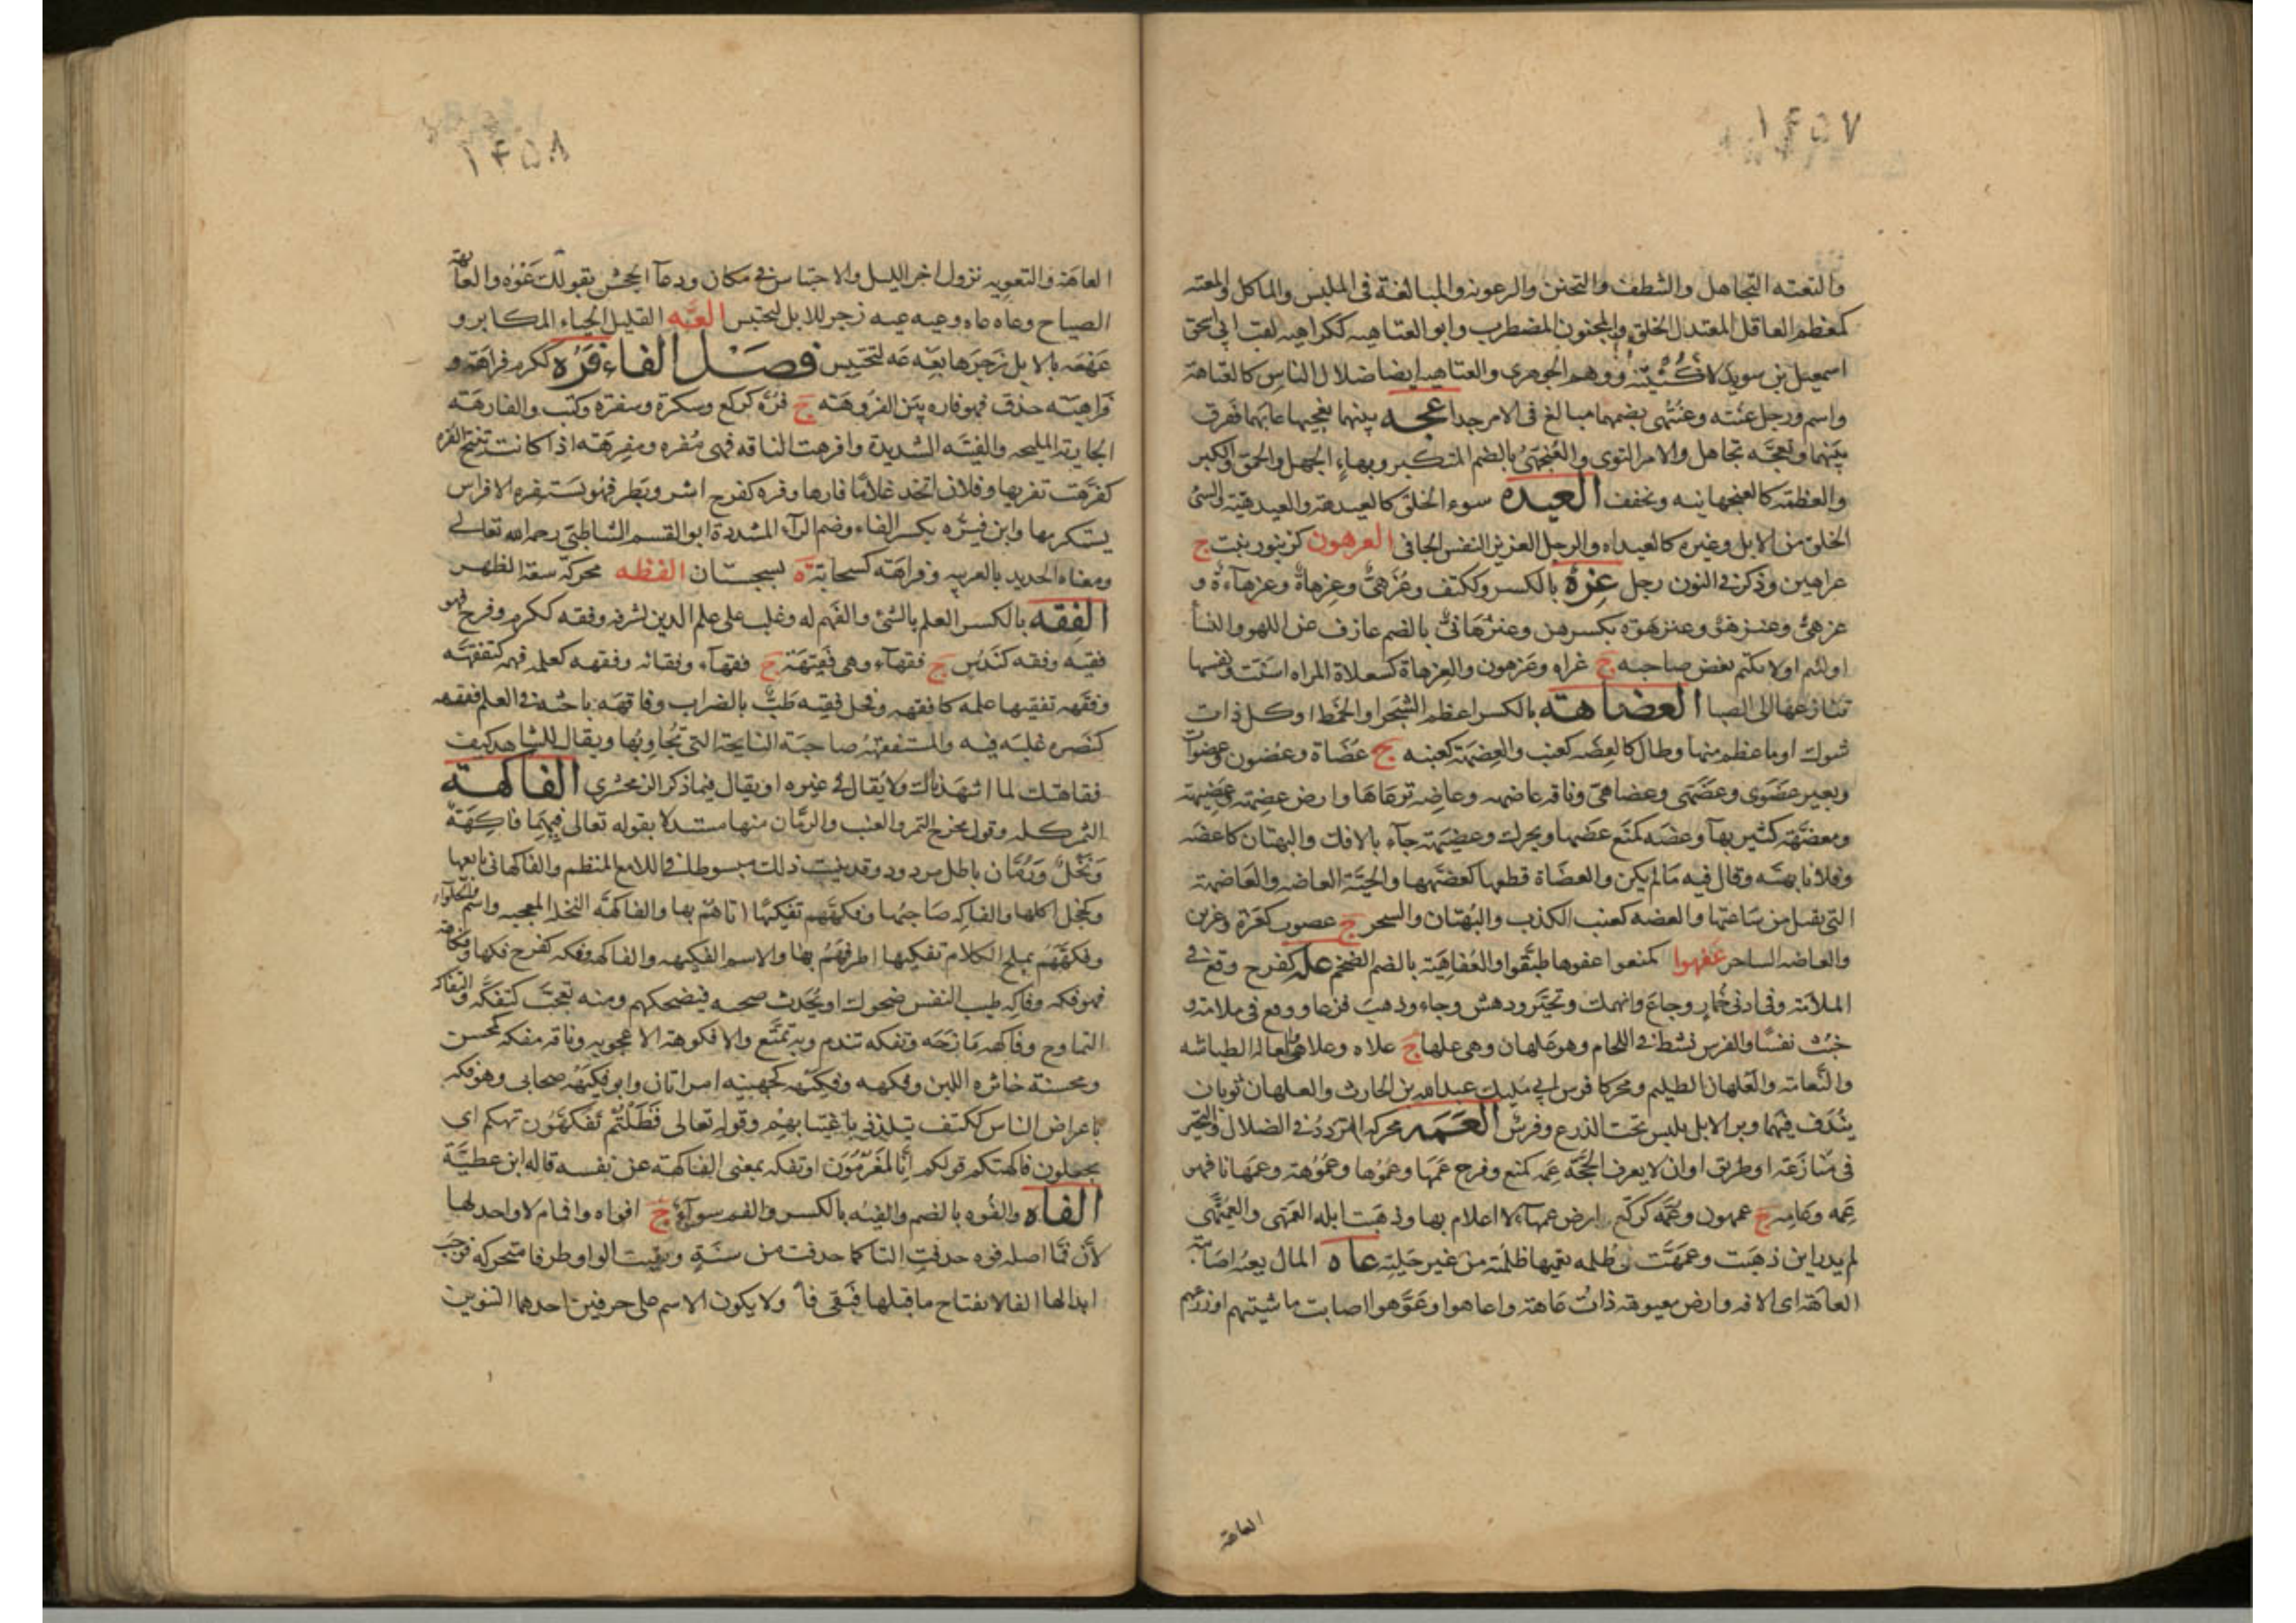 ١٤٥٧
والتعته التجاهل والشطف والتجنن والرعونه والمبالغة فى الملبس والماكل والمعته
كمعظم العاقل المعتدل الخلق والمجنون المضطرب وابو العتاهيه ككراهيه لقب ابى اسحق
اسمعيل بن سويد لا كنيته ووهم الجوهرى والعتاهيه ايضا ضلال الناس كالعتاهة
واسم ورجل عته وعتهى بضمهما مبالغ فى الامر جدا عجه بينهما تعجيها عابهما ففرق
بينهما وتعجه تجاهل والامر التوى والعنجهى بالضم المتكبر وبهاء الجهل والحمق والكبر
والعظمة كالعنجهانيه وتخفف العيده سوء الخلق كالعيدهة والعيدهية والسئ
الخلق من الابل وغيره كالعيداه والرجل العزيز النفس الجافى العرهون كزنبور نبت ج
عراهين وذكر فى النون رجل عزه بالكسر وككتف وعزهى وعزهاة وعزهاءة و
عزهى وعنزهو وعنزهوة بكسرهن وعنزهانى بالضم عازف عن اللهو والنسأ
اولئم اولا يكتم بغض صاحبه ج عزاه وعزهون والعزهاة كسعلاة المراه اسنت ونفسها
تنازعها الى الصبا العضاهة بالكسر اعظم الشجر او الخمط او كل ذات
شوك او ما عظم منها وطال كالعضه كعنب والعضهة كعنبه ج عضاة وعضون وعضوات
وبعير عضوى وعضهى وعضاهى وناقه عاضهه وعاضه ترعاها وارض عضهة وعضيهة
ومعضهة كثير بها وعضه كمنع عضها ويحرك وعضيهة جآء بالافك والبهتان كاعضه
وفلانا بهته وقال فيه ما لم يكن والعضاة قطعها كعضهها والحية العاضه والعاضهة
التى يقتل من ساعتها والعضه كعنب الكذب والبهتان والسحر ج عضون كعزة وعزين
والعاضه الساحر عفهوا كمنعوا عفوها طبقوا والعفاهية بالضم الضخم عله كفرح وقع فى
الملامة وفى ادنى خمار وجاع وانهمك وتحير ودهش وجاء وذهب فزعا ووقع فى ملامة و
خبث نفسا والفرس نشط فى اللجام وهو علهان وهى علها ج علاه وعلاهى والعاله الطياشه
والنعامة والعلهان الظليم ومحركا فرس ابى مليك عبدالله بن الحارث والعلهان ثوبان
يندف فيهما وبر الابل يلبس تحت الدرع وفرس العمه محركه التردد فى الضلال والتحير
فى منازعة او طريق او ان لا يعرف الحجة عمه كمنع وفرح عمها وعموها وعموهة وعمهانا فهو
عمه وعامه ج عمهون وعمه كركع وارض عمهآء لا اعلام بها وذهبت ابله العمهى والعميهى
لم يدر اين ذهبت وعمهت فى ظلمه تعيها ظلمته من غير جلية عاه المال يعه اصابته
العاهة اى الافه وارض معيوهة ذات عاهة واعاهوا وعوهوا اصابت ماشيتهم او زرعهم
العاهة
١٤٥٨
العاهة والتعويه نزول اخر الليل والاحتباس فى مكان ودعآ الجحش بقولك عوه والعاهة
الصياح وعاه عاه وعيه عيه زجر للابل لتحتبس العته القليل الحياء المكابر و
عهعه بالابل زجرها بعه عه لتحتبس فصل الفاء فره ككرم فراهة و
فراهية حذق فهو فاره بين الفروهة ج فره كركع وسكرة وسفرة وكتب والفارهة
الجارية المليحه والفتيه الشديدة وافرهت الناقه فهى مفره ومفرهة اذا كانت تنتج الفره
كفرهت تفريها وفلان اتخذ غلاما فارها وفره كفرح اشر وبطر فهو يستفره الافراس
يستكرمها وابن فيره بكسر الفاء وضم الرآء المشددة ابو القسم الشاطبى رحمه الله تعالى
ومعناه الحديد بالعربيه وفراهة كسحابة ة بسجستان الفظه محركة سعة الظهر
الفقه بالكسر العلم بالشئ والفهم له وغلب على علم الدين لشرفه وفقه ككرم وفرح فهو
فقيه وفقه كندس ج فقهآء وهى فقيهة ج فقهآء وفقائه وفقهه كعلمه فهمه كتفقهه
وفقهه تفقيها علمه كافقهه وفحل فقيه طب بالضراب وفاقهه باحثه فى العلم ففقهه
كنصره غلبه فيه والمستفقهة صاحبة النايحة التى تجاوبها ويقال للشاهد كيف
فقاهتك لما اشهدناك ولا يقال فى غيره او يقال فيما ذكر الزمخشرى الفاكهة
الثمر كله وقول مخرج التمر والعنب والرمان منها مستدلا بقوله تعالى فيهما فاكهة
ونخل ورمان باطل مردود وقد بينت ذلك مبسوطا فى اللامع المنظم والفاكهانى بايعها
وكخجل اكلها والفاكه صاحبها وفكههم تفكيها اتاهم بها والفاكهة النخله المعجبه واسم والحلوآء
وفكههم بملح الكلام تفكيها اطرفهم بها والاسم الفكيهه والفاكهه وفكه كفرح فكها وفكاهة
فهو فكه وفاكه طيب النفس ضحوك او يحدث صحبه فيضحكهم ومنه تعجب كتفكه والتفاكه
التمازح وفاكهه مازحه وتفكه تندم وبه تمتع والافكوهة الاعجوبه وناقه مفكه كمحسن
ومحسنة خاثره اللبن وفكهه وفكيهه كجهينه امراتان وابو فكيهة صحابى وهو فكه
باعراض الناس ككتف يتلذذ باغتيابهم وقوله تعالى فظلتم تفكهون تهكم اى
تجعلون فاكهتكم قولكم إنا لمغرمون او تفكه بمعنى الفى الفاكهة عن نفسه قاله ابن عطية
الفاه والفوه بالضم والفيه بالكسر والفم سوآء ج افواه وافمام لا واحد لها
لأن فما اصله فوه حذفت الها كما حذفت من سنة وبقيت الواو طرفا متحركه فوجب
ابدالها الفا لانفتاح ما قبلها فبقى فا ولا يكون الاسم على حرفين احدهما التنوين